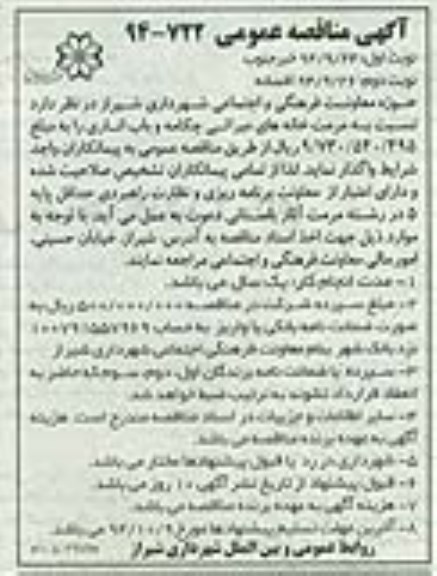 آگهی مناقصه عمومی ۷۲۲-۹۴
نوبت اول: ۹۴/۹/۲۳ خبر جنوب
نوبت دوم: ۹۴/۹/۲۶ افسانه
حوزه معاونت فرهنگی و اجتماعی شهرداری شیراز در نظر دارد
نسبت به مرمت خانه های میراثی چکامه و باب اناری را به مبلغ
۹/۷۳۰/۵۲۰/۴۹۵ ریال از طریق مناقصه عمومی به پیمانکاران واجد
شرایط واگذار نماید. لذا از تمامی پیمانکاران تشخیص صلاحیت شده
و دارای اعتبار از معاونت برنامه ریزی و نظارت راهبردی حداقل پایه
۵ در رشته مرمت آثار باستانی دعوت به عمل می آید. با توجه به
موارد ذیل جهت اخذ اسناد مناقصه به آدرس: شیراز، خیابان حسینی،
امور مالی معاونت فرهنگی و اجتماعی مراجعه نمایند.
۱- مدت انجام کار: یک سال می باشد.
۲- مبلغ سپرده شرکت در مناقصه ۵۰۰/۰۰۰/۰۰۰ ریال به
صورت ضمانت نامه بانکی یا واریز به حساب
نزد بانک شهر بنام معاونت فرهنگی اجتماعی شهرداری شیراز
۳- سپرده یا ضمانت نامه برندگان اول، دوم، سوم که حاضر به
انعقاد قرارداد نشوند به ترتیب ضبط خواهد شد.
۴- سایر اطلاعات و جزییات در اسناد مناقصه مندرج است. هزینه
آگهی به عهده برنده مناقصه می باشد.
۵- شهرداری در رد یا قبول پیشنهادها مختار می باشد.
۶- قبول پیشنهاد از تاریخ نشر آگهی ۱۰ روز می باشد.
۷- هزینه آگهی به عهده برنده مناقصه می باشد.
۸- آخرین مهلت تسلیم پیشنهادها مورخ ۹۴/۱۰/۹ می باشد.
روابط عمومی و بین الملل شهرداری شیراز